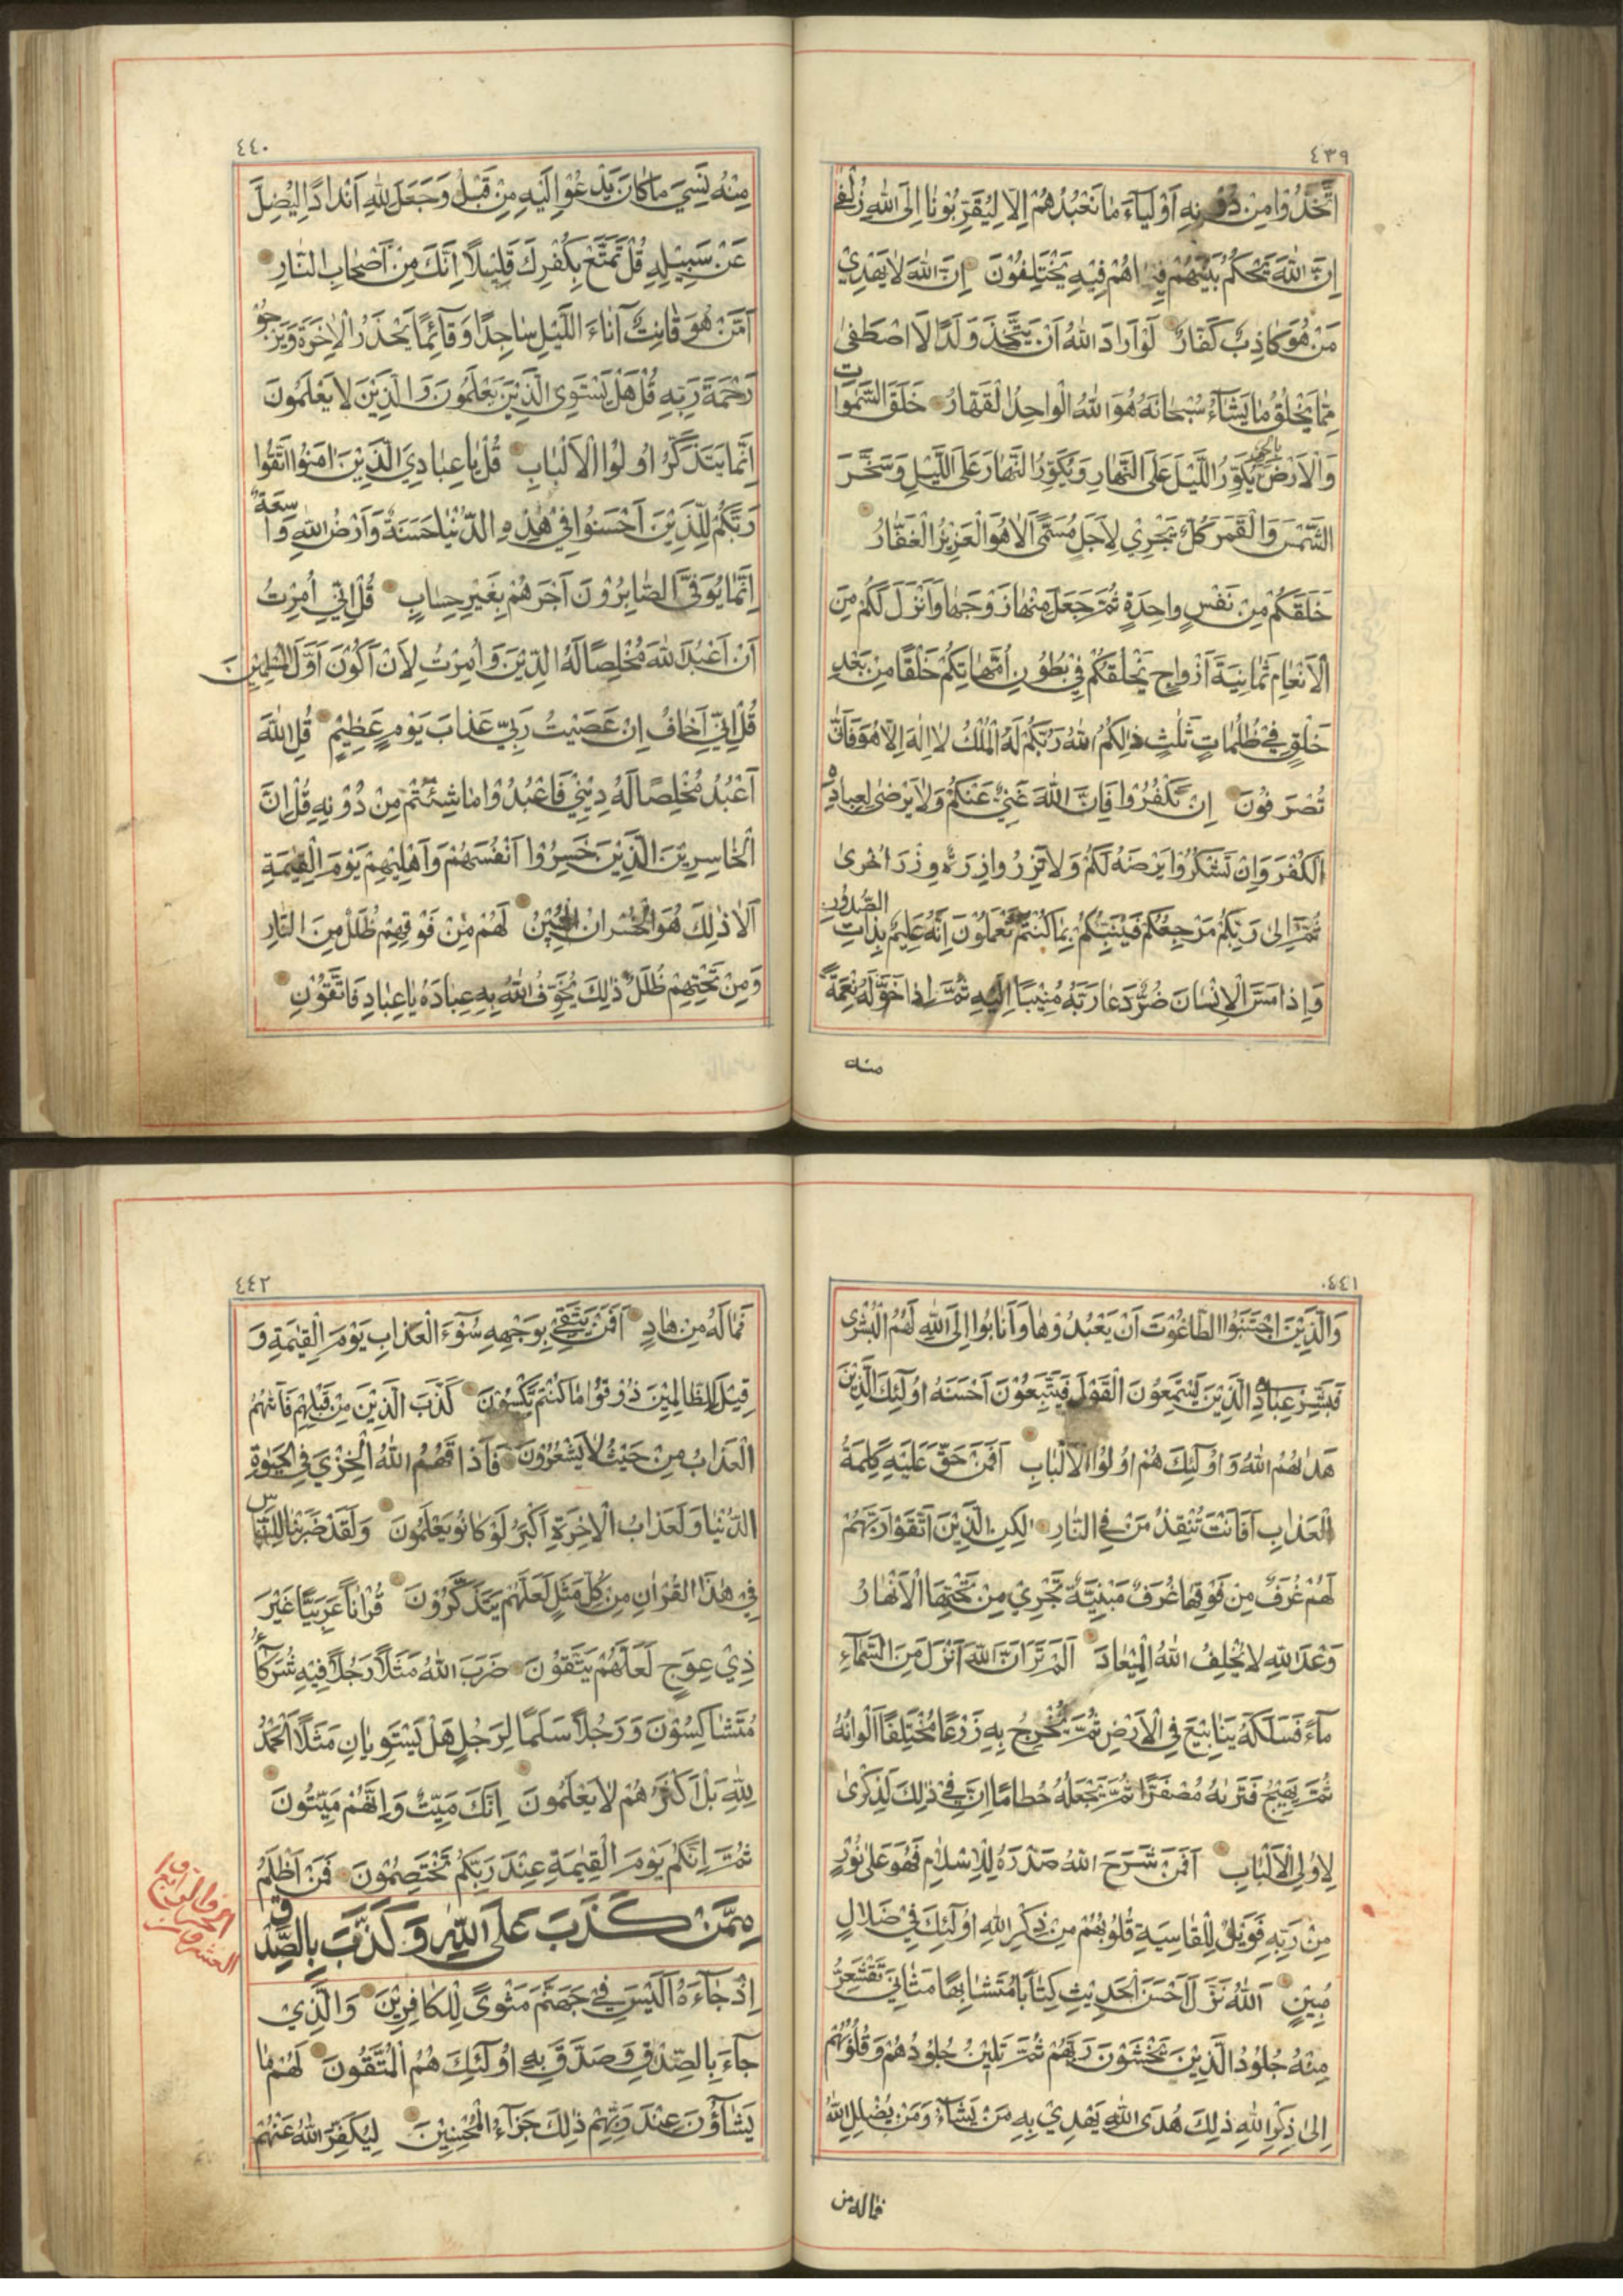 ٤٣٩
اتَّخَذُوا مِنْ دُونِهِ اَوْلِيَآءَ مَا نَعْبُدُهُمْ اِلَّا لِيُقَرِّبُونَا اِلَى اللهِ زُلْفٰى
اِنَّ اللهَ يَحْكُمُ بَيْنَهُمْ فِيمَا هُمْ فِيهِ يَخْتَلِفُونَ اِنَّ اللهَ لَا يَهْدِي
مَنْ هُوَ كَاذِبٌ كَفَّارٌ لَوْ اَرَادَ اللهُ اَنْ يَتَّخِذَ وَلَدًا لَاصْطَفٰى
مِمَّا يَخْلُقُ مَا يَشَآءُ سُبْحَانَهُ هُوَ اللهُ الْوَاحِدُ الْقَهَّارُ خَلَقَ السَّمٰوَات
وَالْاَرْضَ بِالْحَقِّ يُكَوِّرُ اللَّيْلَ عَلَى النَّهَارِ وَيُكَوِّرُ النَّهَارَ عَلَى اللَّيْلِ وَسَخَّرَ
الشَّمْسَ وَالْقَمَرَ كُلٌّ يَجْرِيْ لِاَجَلٍ مُسَمًّى اَلَا هُوَ الْعَزِيزُ الْغَفَّارُ
خَلَقَكُمْ مِنْ نَفْسٍ وَاحِدَةٍ ثُمَّ جَعَلَ مِنْهَا زَوْجَهَا وَاَنْزَلَ لَكُمْ مِنَ
الْاَنْعَامِ ثَمَانِيَةَ اَزْوَاجٍ يَخْلُقُكُمْ فِيْ بُطُونِ اُمَّهَاتِكُمْ خَلْقًا مِنْ بَعْدِ
خَلْقٍ فِيْ ظُلُمَاتٍ ثَلٰثٍ ذٰلِكُمُ اللهُ رَبُّكُمْ لَهُ الْمُلْكُ لَا اِلٰهَ اِلَّا هُوَ فَاَنّٰى
تُصْرَفُوْنَ اِنْ تَكْفُرُوا فَاِنَّ اللهَ غَنِيٌّ عَنْكُمْ وَلَا يَرْضٰى لِعِبَادِهِ
الْكُفْرَ وَاِنْ تَشْكُرُوْا يَرْضَهُ لَكُمْ وَلَا تَزِرُ وَازِرَةٌ وِزْرَ اُخْرٰى
ثُمَّ اِلٰى رَبِّكُمْ مَرْجِعُكُمْ فَيُنَبِّئُكُمْ بِمَا كُنْتُمْ تَعْمَلُونَ اِنَّهُ عَلِيمٌ بِذَاتِ الصُّدُوْرِ
وَاِذَا مَسَّ الْاِنْسَانَ ضُرٌّ دَعَا رَبَّهُ مُنِيْبًا اِلَيْهِ ثُمَّ اِذَا خَوَّلَهُ نِعْمَةً
منه
٤٤٠
مِنْهُ نَسِيَ مَا كَانَ يَدْعُوْا اِلَيْهِ مِنْ قَبْلُ وَجَعَلَ لِلّٰهِ اَنْدَادًا لِيُضِلَّ
عَنْ سَبِيْلِهِ قُلْ تَمَتَّعْ بِكُفْرِكَ قَلِيْلًا اِنَّكَ مِنْ اَصْحَابِ النَّارِ
اَمَّنْ هُوَ قَانِتٌ اٰنَآءَ اللَّيْلِ سَاجِدًا وَقَآئِمًا يَحْذَرُ الْاٰخِرَةَ وَيَرْجُوْ
رَحْمَةَ رَبِّهِ قُلْ هَلْ يَسْتَوِى الَّذِيْنَ يَعْلَمُونَ وَالَّذِيْنَ لَا يَعْلَمُونَ
اِنَّمَا يَتَذَكَّرُ اُولُوْا الْاَلْبَابِ قُلْ يَا عِبَادِيَ الَّذِيْنَ اٰمَنُوْا اتَّقُوْا
رَبَّكُمْ لِلَّذِيْنَ اَحْسَنُوْا فِيْ هٰذِهِ الدُّنْيَا حَسَنَةٌ وَاَرْضُ اللهِ وَاسِعَةٌ
اِنَّمَا يُوَفَّى الصَّابِرُوْنَ اَجْرَهُمْ بِغَيْرِ حِسَابٍ قُلْ اِنِّيْ اُمِرْتُ
اَنْ اَعْبُدَ اللهَ مُخْلِصًا لَهُ الدِّيْنَ وَاُمِرْتُ لِاَنْ اَكُوْنَ اَوَّلَ الْمُسْلِمِيْنَ
قُلْ اِنِّيْ اَخَافُ اِنْ عَصَيْتُ رَبِّيْ عَذَابَ يَوْمٍ عَظِيْمٍ قُلِ اللهَ
اَعْبُدُ مُخْلِصًا لَهُ دِيْنِيْ فَاعْبُدُوْا مَا شِئْتُمْ مِنْ دُوْنِهِ قُلْ اِنَّ
الْخَاسِرِيْنَ الَّذِيْنَ خَسِرُوْا اَنْفُسَهُمْ وَاَهْلِيْهِمْ يَوْمَ الْقِيٰمَةِ
اَلَا ذٰلِكَ هُوَ الْخُسْرَانُ الْمُبِيْنُ لَهُمْ مِنْ فَوْقِهِمْ ظُلَلٌ مِنَ النَّارِ
وَمِنْ تَحْتِهِمْ ظُلَلٌ ذٰلِكَ يُخَوِّفُ اللهُ بِهِ عِبَادَهُ يَا عِبَادِ فَاتَّقُوْنِ
٤٤١
وَالَّذِيْنَ اجْتَنَبُوا الطَّاغُوْتَ اَنْ يَعْبُدُوْهَا وَاَنَابُوْا اِلَى اللهِ لَهُمُ الْبُشْرٰى
فَبَشِّرْ عِبَادِ الَّذِيْنَ يَسْتَمِعُوْنَ الْقَوْلَ فَيَتَّبِعُوْنَ اَحْسَنَهُ اُولٰٓئِكَ الَّذِيْنَ
هَدٰىهُمُ اللهُ وَاُولٰٓئِكَ هُمْ اُولُوْا الْاَلْبَابِ اَفَمَنْ حَقَّ عَلَيْهِ كَلِمَةُ
الْعَذَابِ اَفَاَنْتَ تُنْقِذُ مَنْ فِي النَّارِ لٰكِنِ الَّذِيْنَ اتَّقَوْا رَبَّهُمْ
لَهُمْ غُرَفٌ مِنْ فَوْقِهَا غُرَفٌ مَبْنِيَّةٌ تَجْرِيْ مِنْ تَحْتِهَا الْاَنْهَارُ
وَعْدَ اللهِ لَا يُخْلِفُ اللهُ الْمِيْعَادَ اَلَمْ تَرَ اَنَّ اللهَ اَنْزَلَ مِنَ السَّمَآءِ
مَآءً فَسَلَكَهُ يَنَابِيْعَ فِي الْاَرْضِ ثُمَّ يُخْرِجُ بِهِ زَرْعًا مُخْتَلِفًا اَلْوَانُهُ
ثُمَّ يَهِيْجُ فَتَرٰىهُ مُصْفَرًّا ثُمَّ يَجْعَلُهُ حُطَامًا اِنَّ فِيْ ذٰلِكَ لَذِكْرٰى
لِاُولِي الْاَلْبَابِ اَفَمَنْ شَرَحَ اللهُ صَدْرَهُ لِلْاِسْلَامِ فَهُوَ عَلٰى نُوْرٍ
مِنْ رَبِّهِ فَوَيْلٌ لِلْقَاسِيَةِ قُلُوْبُهُمْ مِنْ ذِكْرِ اللهِ اُولٰٓئِكَ فِيْ ضَلَالٍ
مُبِيْنٍ اَللهُ نَزَّلَ اَحْسَنَ الْحَدِيْثِ كِتَابًا مُتَشَابِهًا مَثَانِيَ تَقْشَعِرُّ
مِنْهُ جُلُوْدُ الَّذِيْنَ يَخْشَوْنَ رَبَّهُمْ ثُمَّ تَلِيْنُ جُلُوْدُهُمْ وَقُلُوْبُهُمْ
اِلٰى ذِكْرِ اللهِ ذٰلِكَ هُدَى اللهِ يَهْدِيْ بِهِ مَنْ يَشَآءُ وَمَنْ يُضْلِلِ اللهُ
فماله من
٤٤٢
فَمَا لَهُ مِنْ هَادٍ اَفَمَنْ يَتَّقِيْ بِوَجْهِهِ سُوْٓءَ الْعَذَابِ يَوْمَ الْقِيٰمَةِ وَ
قِيْلَ لِلظَّالِمِيْنَ ذُوْقُوْا مَا كُنْتُمْ تَكْسِبُوْنَ كَذَّبَ الَّذِيْنَ مِنْ قَبْلِهِمْ فَاَتٰىهُمُ
الْعَذَابُ مِنْ حَيْثُ لَا يَشْعُرُوْنَ فَاَذَاقَهُمُ اللهُ الْخِزْيَ فِي الْحَيٰوةِ
الدُّنْيَا وَلَعَذَابُ الْاٰخِرَةِ اَكْبَرُ لَوْ كَانُوْ يَعْلَمُوْنَ وَلَقَدْ ضَرَبْنَا لِلنَّاسِ
فِيْ هٰذَا الْقُرْاٰنِ مِنْ كُلِّ مَثَلٍ لَعَلَّهُمْ يَتَذَكَّرُوْنَ قُرْاٰنًا عَرَبِيًّا غَيْرَ
ذِيْ عِوَجٍ لَعَلَّهُمْ يَتَّقُوْنَ ضَرَبَ اللهُ مَثَلًا رَجُلًا فِيْهِ شُرَكَآءُ
مُتَشَاكِسُوْنَ وَرَجُلًا سَلَمًا لِرَجُلٍ هَلْ يَسْتَوِيَانِ مَثَلًا اَلْحَمْدُ
لِلّٰهِ بَلْ اَكْثَرُهُمْ لَا يَعْلَمُوْنَ اِنَّكَ مَيِّتٌ وَاِنَّهُمْ مَيِّتُوْنَ
ثُمَّ اِنَّكُمْ يَوْمَ الْقِيٰمَةِ عِنْدَ رَبِّكُمْ تَخْتَصِمُوْنَ فَمَنْ اَظْلَمُ
مِمَّنْ كَذَبَ عَلَى اللهِ وَكَذَّبَ بِالصِّدْقِ
اِذْ جَآءَهُ اَلَيْسَ فِيْ جَهَنَّمَ مَثْوًى لِلْكَافِرِيْنَ وَالَّذِيْ
جَآءَ بِالصِّدْقِ وَصَدَّقَ بِهِ اُولٰٓئِكَ هُمُ الْمُتَّقُوْنَ لَهُمْ مَا
يَشَآؤُنَ عِنْدَ رَبِّهِمْ ذٰلِكَ جَزَآءُ الْمُحْسِنِيْنَ لِيُكَفِّرَ اللهُ عَنْهُمْ